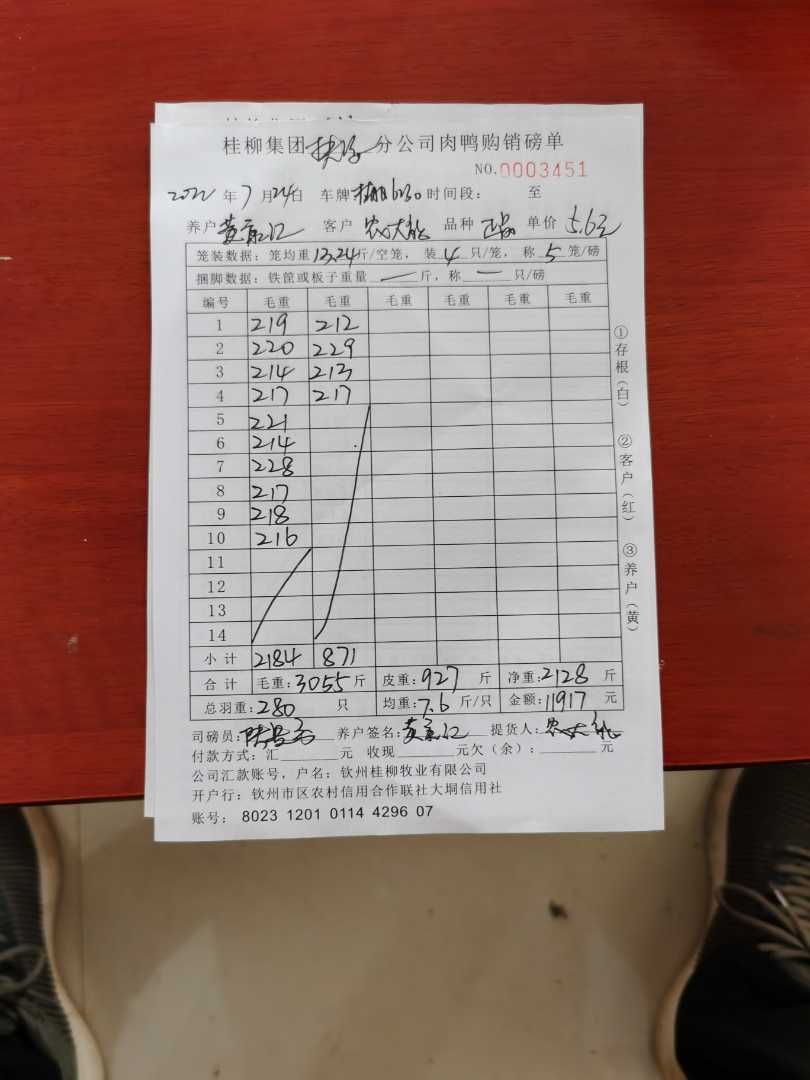 桂柳集团扶绥分公司肉鸭购销磅单
NO.0003451
2022年7月24日 车牌 6230 时间段: 至
养户 黄 江 客户 农大 品种 正品 单价 5.6元
笼装数据: 笼均重13.24斤/空笼, 装4只/笼, 称5笼/磅
捆脚数据: 铁筐或板子重量一斤, 称一只/磅
编号 毛重 毛重 毛重 毛重 毛重 毛重
1 219 212
2 220 229
3 214 213
4 217 217
5 221
6 214
7 228
8 217
9 218
10 216
11
12
13
14
小计 2184 871
合计 毛重:3055斤 皮重:927斤 净重:2128斤
总羽重:280只 均重:7.6斤/只 金额:11917元
司磅员: 养户签名:黄 江 提货人:农大
付款方式: 汇____元 收现____元欠(余):____元
公司汇款账号, 户名: 钦州桂柳牧业有限公司
开户行: 钦州市区农村信用合作联社大垌信用社
账号: 8023 1201 0114 4296 07
①存根(白)
②客户(红)
③养户(黄)